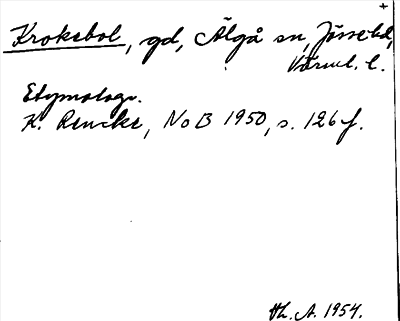 +
Krokebol, gd, Älgå sn, Jösse hd,
Värml. l.
Etymologi.
K. Rencke, NoB 1950, s. 126 f.
Th. A. 1954.